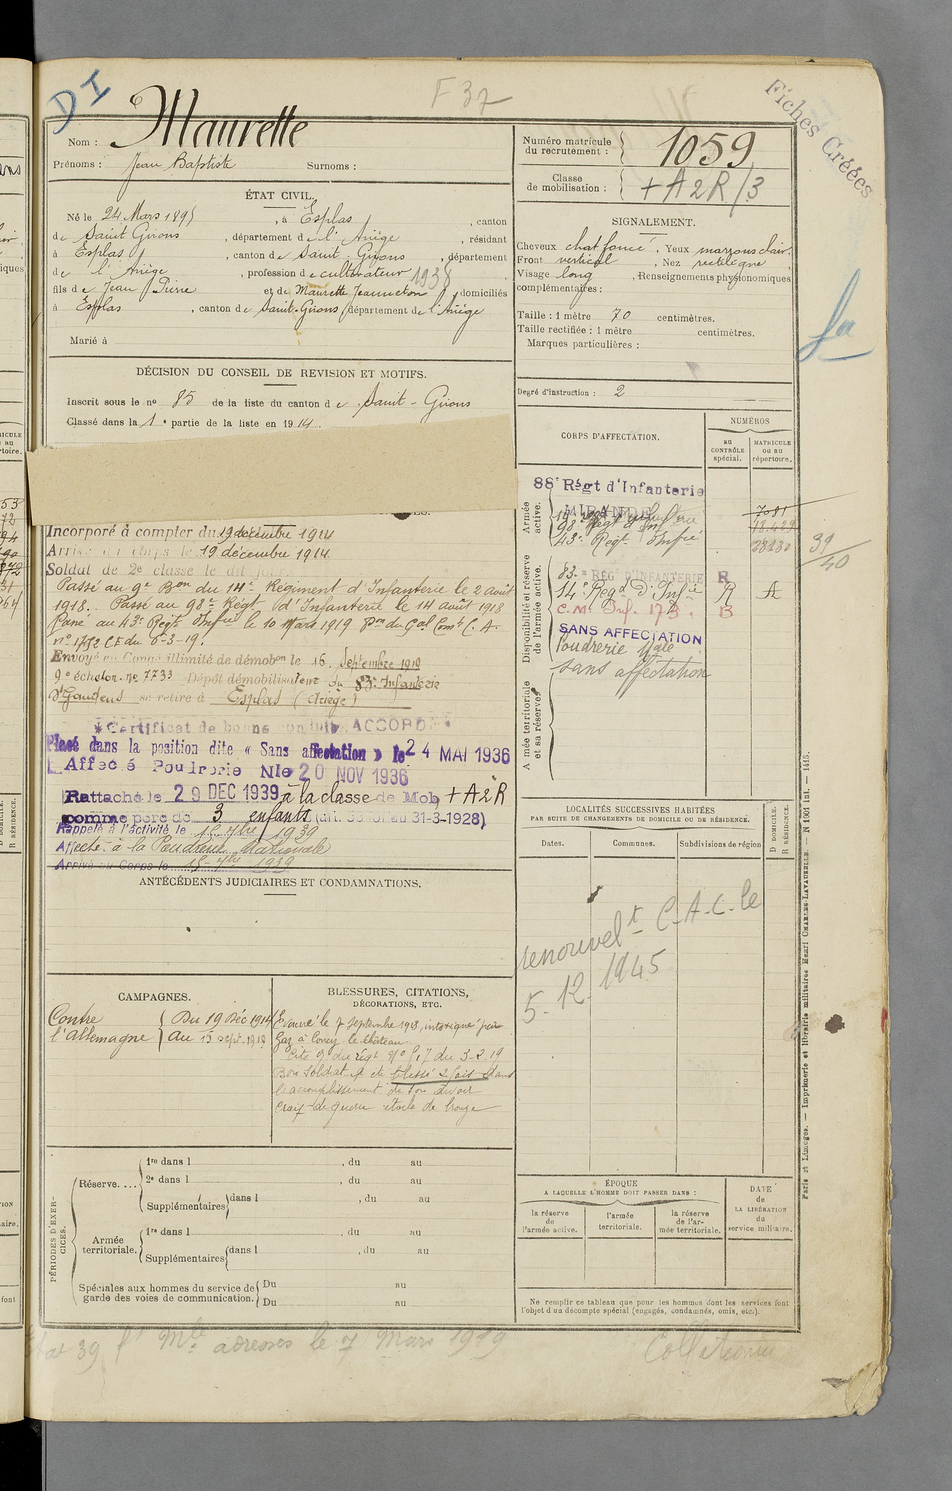 DI
F 37
Fiches Créées
Nom : Maurette
Prénoms : Jean Baptiste Surnoms :
Numéro matricule du recrutement : 1059
Classe de mobilisation : + A 2 R / 3
ÉTAT CIVIL.
Né le 24 Mars 1895, à Esplas, canton
de Saint Girons, département de l'Ariège, résidant
à Esplas, canton de Saint-Girons, département
de l'Ariège, profession de cultivateur 1938
fils de Jean Pierre et de Maurette Jeanneton domiciliés
à Esplas, canton de Saint-Girons, département de l'Ariège
Marié à
SIGNALEMENT.
Cheveux chat foncé. Yeux marrons clair.
Front vertical, Nez rectiligne
Visage long, Renseignements physionomiques
complémentaires :
Taille : 1 mètre 70 centimètres.
Taille rectifiée : 1 mètre centimètres.
Marques particulières :
Degré d'instruction : 2
DÉCISION DU CONSEIL DE REVISION ET MOTIFS.
Inscrit sous le no 85 de la liste du canton de Saint-Girons
Classé dans la 1e partie de la liste en 1914.
Incorporé à compter du 19 décembre 1914
Arrivé au corps le 19 décembre 1914.
Soldat de 2e classe le dit jour
Passé au 9e Bon du 14e Régiment d'Infanterie le 2 août
1918. Passé au 98e Régt d'Infanterie le 14 août 1918
Passé au 43e Régt Infie le 10 Mars 1919 Don du Gal Comt C. A.
no 1752 CE du 6-3-19.
Envoyé en Congé illimité de démobon le 16 Septembre 1919
9e échelon no 7733 Dépôt démobilisateur du 83e Infanterie
St Gaudens se retire à Esplas (Ariège)
Certificat de bonne conduite ACCORDÉ
Placé dans la position dite « Sans affectation » le 24 MAI 1936
Affecté Poudrerie Nle 20 NOV 1936
Rattaché le 29 DEC 1939 à la classe de Mob + A 2 R
comme père de 3 enfants (art. 58 loi du 31-3-1928)
Rappelé à l'activité le 15 7bre 1939
Affecté à la Poudrerie Nationale
Arrivé au Corps le 15 7bre 1939
CORPS D'AFFECTATION.
NUMÉROS
au CONTRÔLE spécial.
MATRICULE ou au répertoire.
Armée active.
88e Régt d'Infanterie
MIRANDE
98e Régt d'Inf
43e Régt Infie
39
40
Disponibilité et réserve de l'armée active.
83e REGt D'INFANTERIE R
14e Régt D'Infie R A
SANS AFFECTATION
Poudrerie Nale
sans affectation
Armée territoriale et sa réserve.
LOCALITÉS SUCCESSIVES HABITÉES
PAR SUITE DE CHANGEMENTS DE DOMICILE OU DE RÉSIDENCE.
Dates. Communes. Subdivisions de région
D DOMICILE.
R RÉSIDENCE.
renouvelt C.A.C. le
5-12-1945
ANTÉCÉDENTS JUDICIAIRES ET CONDAMNATIONS.
CAMPAGNES.
Contre l'Allemagne
Du 19 Déc 1914
Au 15 Sept. 1919
BLESSURES, CITATIONS,
DÉCORATIONS, ETC.
Evacué le 7 Septembre 1918, intoxiqué par
gaz à Coucy-le-Château.
Cité O. du régt No 517 du 3-2-19
Bon soldat a été blessé 2 fois dans
l'accomplissement de son devoir
Croix-de-guerre étoile de bronze
PÉRIODES D'EXERCICES.
Réserve....
1re dans l , du au
2e dans l , du au
Supplémentaires dans l , du au
Armée territoriale.
1re dans l , du au
Supplémentaires dans l , du au
Spéciales aux hommes du service de garde des voies de communication.
Du au
Du au
ÉPOQUE
A LAQUELLE L'HOMME DOIT PASSER DANS :
la réserve de l'armée active.
l'armée territoriale.
la réserve de l'armée territoriale.
DATE de LA LIBÉRATION du service militaire.
Ne remplir ce tableau que pour les hommes dont les services font
l'objet d'un décompte spécial (engagés, condamnés, omis, etc.).
Paris et Limoges. — Imprimerie et librairie militaires Henri CHARLES-LAVAUZELLE.
adresses le 7 Mars 1919